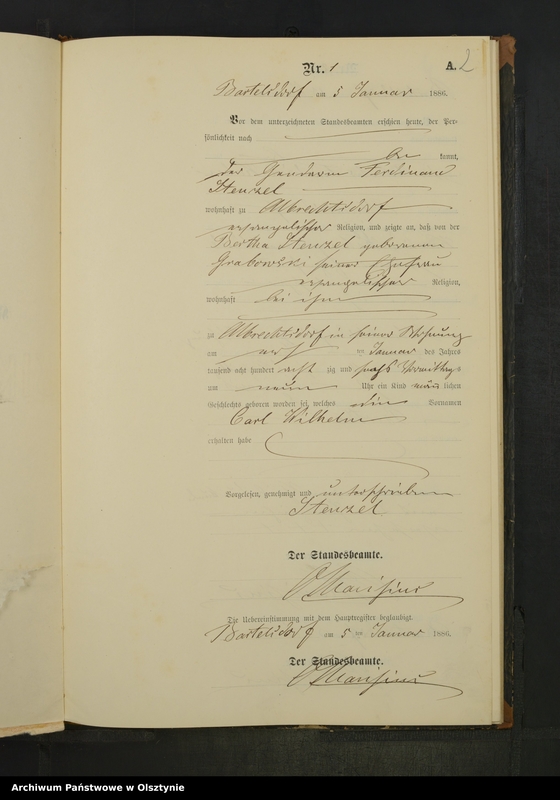 2
Nr. 1 A.
Bartelsdorf am 5 Januar 1886.
Vor dem unterzeichneten Standesbeamten erschien heute, der Per-
sönlichkeit nach
be kannt,
der Gendarm Ferdinand
Stenzel
wohnhaft zu Albrechtsdorf
evangelischer Religion, und zeigte an, daß von der
Bertha Stenzel geborenen
Grabowski seiner Ehefrau
evangelischer Religion,
wohnhaft bei ihm
zu Albrechtsdorf in seiner Wohnung
am ten Januar des Jahres
tausend acht hundert acht zig und sechs Vormittags
um neun Uhr ein Kind männ lichen
Geschlechts geboren worden sei, welches die Vornamen
Carl Wilhelm
erhalten habe
Vorgelesen, genehmigt und unterschrieben
Stenzel
Der Standesbeamte.
Die Uebereinstimmung mit dem Hauptregister beglaubigt.
Bartelsdorf am 5 ten Januar 1886.
Der Standesbeamte.
Archiwum Państwowe w Olsztynie